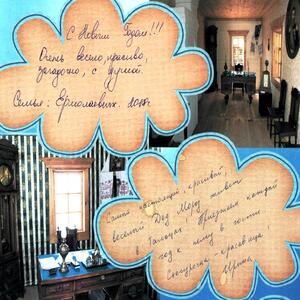 С Новым Годом!!!
Очень весело, красиво,
загадочно, с
Семья: Ермолаевых. 2018г.
Самый настоящий, красивый,
веселый Дед Мороз живет
в Талицах. Приезжаем каждый
год к нему в гости
Снегурочка - красавица!
Ирина